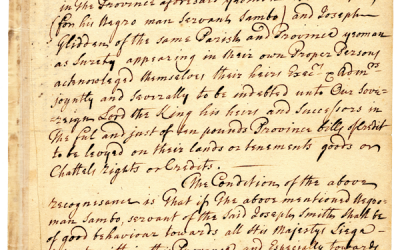 in the Province aforesaid
(for his Negro man Servant Sambo) and Joseph
Glidden of the same Parish and Province yeoman
as Surety appearing in their own Proper Persons
acknowledged themselves their heirs Execrs & Admrs
joyntly and severally to be indebted unto Our Sove-
-reign Lord the King his heirs and Successors in
the full and just of ten pounds Province bills of Credit
to be levyed on their lands or tenements goods or
Chattels rights or Credits.
The Condition of the above
recognisance is That if the above mentioned Negro
man Sambo, servant of the said Joseph Smith shall be
of good behaviour towards all His Majestys Liege
and Especially towards